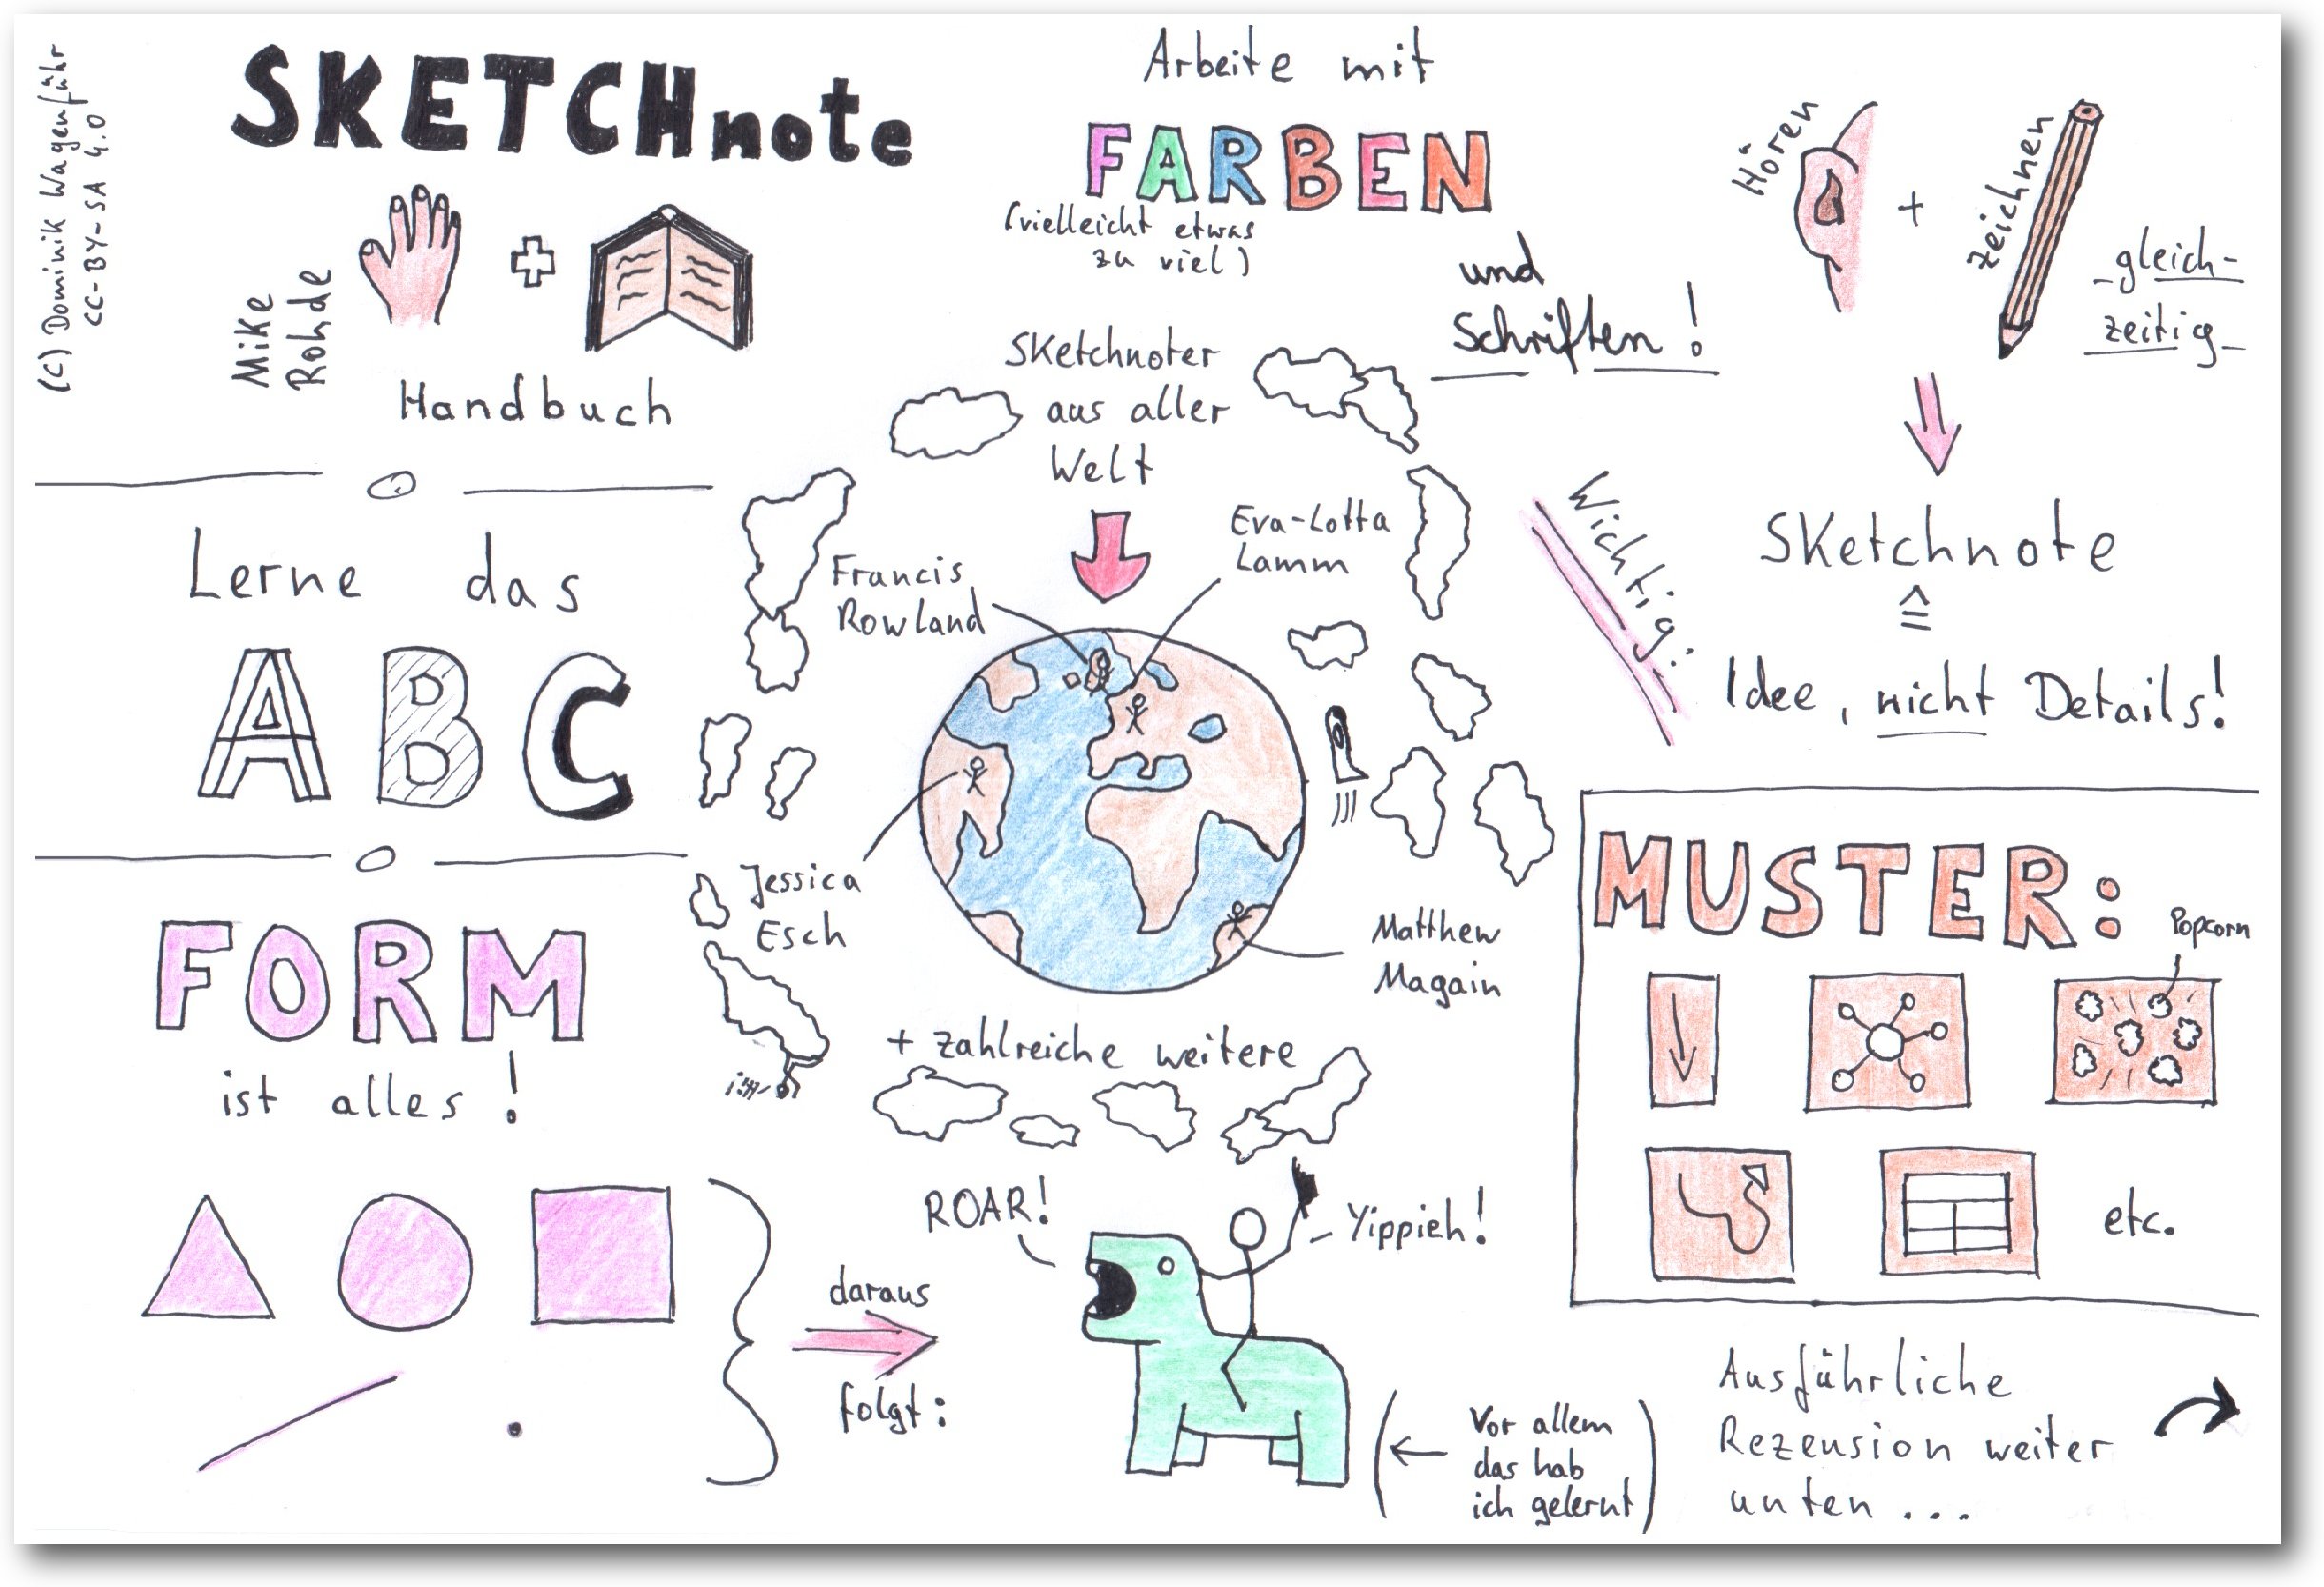 (C) Dominik Wagenführ
CC-BY-SA 4.0
SKETCHnote
Mike
Rohde
Handbuch
Arbeite mit
FARBEN
(vielleicht etwas
zu viel)
und
Schriften!
Hören
+
zeichnen
gleich-
zeitig
Wichtig:
Sketchnote
≙
Idee, nicht Details!
Lerne das
ABC
Sketchnoter
aus aller
Welt
Francis
Rowland
Eva-Lotta
Lamm
Jessica
Esch
Matthew
Magain
+ zahlreiche weitere
FORM
ist alles!
daraus
folgt:
ROAR!
Yippieh!
(← Vor allem
das hab
ich gelernt)
MUSTER:
Popcorn
etc.
Ausführliche
Rezension weiter
unten ...